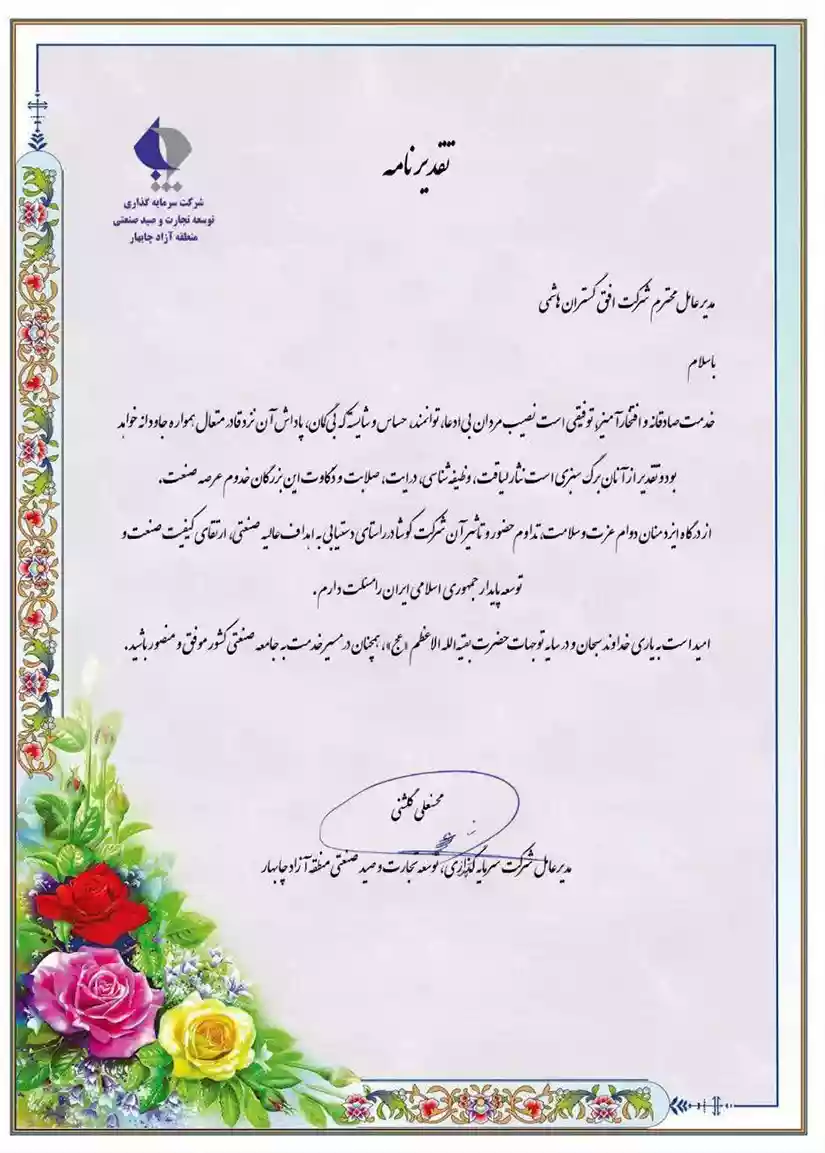 تقدیرنامه
شرکت سرمایه گذاری
توسعه تجارت و صید صنعتی
منطقه آزاد چابهار
مدیرعامل محترم شرکت افق گستران هاشمی
باسلام
خدمت صادقانه و افتخارآمیز، توفیقی است نصیب مردان بی ادعا، توانمند، حساس و شایسته که بی گمان، پاداش آن نزد قادر متعال همواره جاودانه خواهد
بود و تقدیر از آنان برگ سبزی است نثار لیاقت، وظیفه شناسی، درایت، صلابت و ذکاوت این بزرگان خدوم عرصه صنعت.
از درگاه ایزد منان دوام عزت و سلامت، تداوم حضور و تاثیر آن شرکت کوشا در راستای دستیابی به اهداف عالیه صنعتی، ارتقای کیفیت صنعت و
توسعه پایدار جمهوری اسلامی ایران را مسئلت دارم.
امید است به یاری خداوند سبحان و در سایه توجهات حضرت بقیه الله الاعظم «عج»، همچنان در مسیر خدمت به جامعه صنعتی کشور موفق و منصور باشید.
محسنعلی گلشنی
مدیرعامل شرکت سرمایه گذاری، توسعه تجارت و صید صنعتی منطقه آزاد چابهار